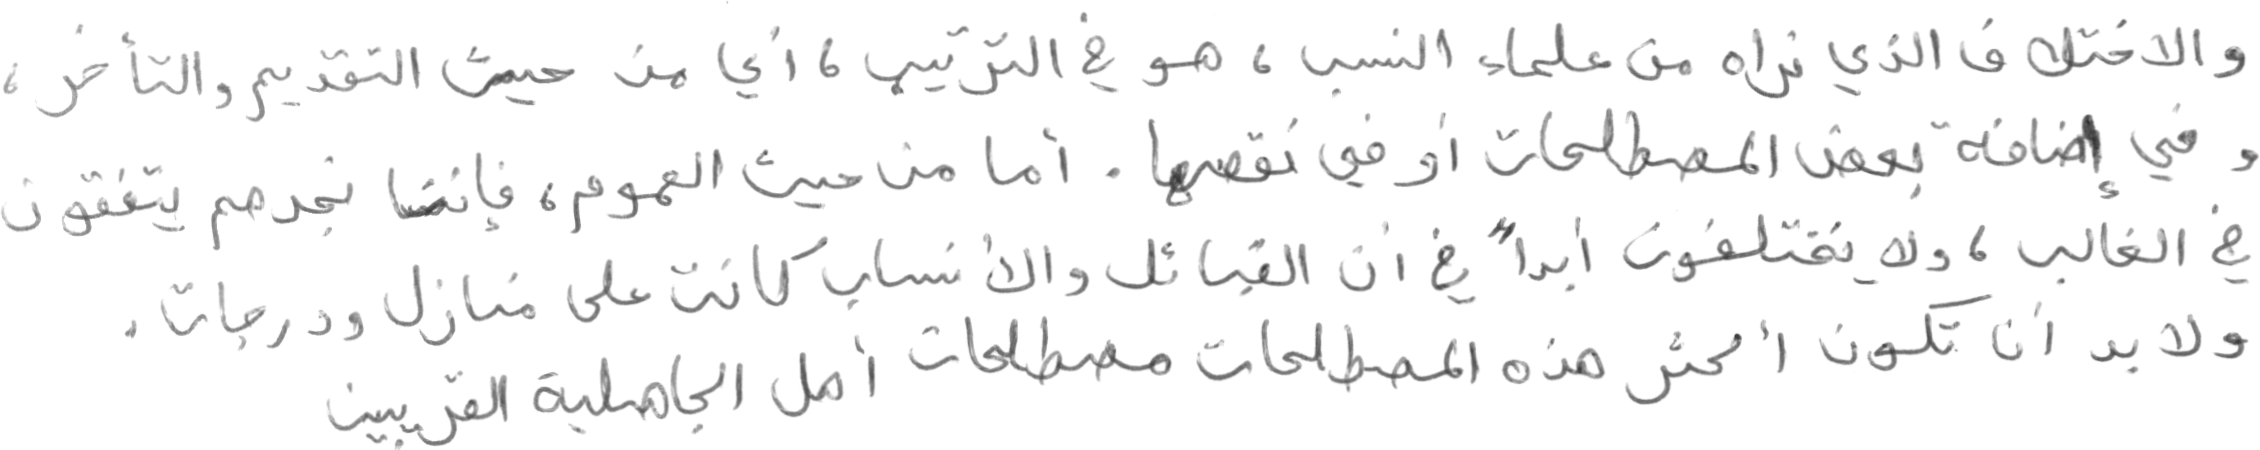 والاختلاف الذي نراه من علماء النسب، هو في الترتيب، أي من حيث التقديم والتأخر،
وفي إضافة بعض المصطلحات أو في نقصها. أما من حيث العموم، فإننا نجدهم يتفقون
في الغالب، ولا يختلفون أبداً في أن القبائل والأنساب كانت على منازل ودرجات.
ولا بد أن تكون أكثر هذه المصطلحات مصطلحات أهل الجاهلية القريبين